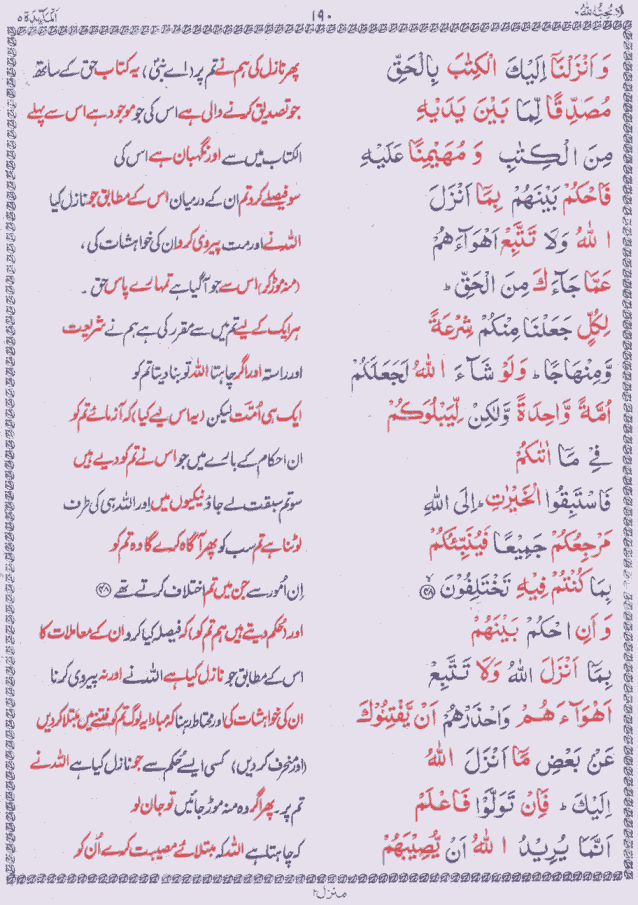 لا يحب الله ٦ ١٩٠ المآئدة ٥
وَاَنْزَلْنَاۤ اِلَيْكَ الْكِتٰبَ بِالْحَقِّ پھر نازل کی ہم نے تم پر (اے نبیؐ) یہ کتاب حق کے ساتھ
مُصَدِّقًا لِّمَا بَيْنَ يَدَيْهِ جو تصدیق کرنے والی ہے اس کی جو موجود ہے اس سے پہلے
مِنَ الْكِتٰبِ وَ مُهَيْمِنًا عَلَيْهِ الکتاب میں سے اور نگہبان ہے اس کی
فَاحْكُمْ بَيْنَهُمْ بِمَاۤ اَنْزَلَ سو فیصلے کرو تم ان کے درمیان اس کے مطابق جو نازل کیا
اللهُ وَلَا تَتَّبِعْ اَهْوَآءَهُمْ اللہ نے اور مت پیروی کرو ان کی خواہشات کی،
عَمَّا جَآءَكَ مِنَ الْحَقِّ ؕ (منہ موڑ کر) اس سے جو آگیا ہے تمہارے پاس حق۔
لِكُلٍّ جَعَلْنَا مِنْكُمْ شِرْعَةً ہر ایک کے لیے تم میں سے مقرر کی ہے ہم نے شریعت
وَّمِنْهَاجًا ؕ وَلَوْ شَآءَ اللهُ لَجَعَلَكُمْ اور راستہ اور اگر چاہتا اللہ تو بنا دیتا تم کو
اُمَّةً وَّاحِدَةً وَّلٰكِنْ لِّيَبْلُوَكُمْ ایک ہی اُمّت لیکن (یہ اس لیے کیا) کہ آزمائے تم کو
فِيْ مَاۤ اٰتٰىكُمْ ان احکام کے بارے میں جو اس نے تم کو دیے ہیں
فَاسْتَبِقُوا الْخَيْرٰتِ ؕ اِلَى اللهِ سو تم سبقت لے جاؤ نیکیوں میں اور اللہ ہی کی طرف
مَرْجِعُكُمْ جَمِيْعًا فَيُنَبِّئُكُمْ لوٹنا ہے تم سب کو پھر آگاہ کرے گا وہ تم کو
بِمَا كُنْتُمْ فِيْهِ تَخْتَلِفُوْنَ ۙ ﴿۴۸﴾ اِن اُمور سے جن میں تم اختلاف کرتے تھے ﴿۴۸﴾
وَ اَنِ احْكُمْ بَيْنَهُمْ اور (حکم دیتے ہیں ہم تم کو) کہ فیصلہ کیا کرو ان کے معاملات کا
بِمَاۤ اَنْزَلَ اللهُ وَلَا تَتَّبِعْ اس کے مطابق جو نازل کیا ہے اللہ نے اور نہ پیروی کرنا
اَهْوَآءَ هُمْ وَاحْذَرْهُمْ اَنْ يَّفْتِنُوْكَ ان کی خواہشات کی اور محتاط رہنا کہ مبادا یہ لوگ تم کو فتنے میں مبتلا کر دیں
عَنْ بَعْضِ مَاۤ اَنْزَلَ اللهُ (اور منحرف کر دیں) کسی ایسے حُکم سے جو نازل کیا ہے اللہ نے
اِلَيْكَ ؕ فَاِنْ تَوَلَّوْا فَاعْلَمْ تم پر۔ پھر اگر وہ منہ موڑ جائیں تو جان لو
اَنَّمَا يُرِيْدُ اللهُ اَنْ يُّصِيْبَهُمْ کہ چاہتا ہے اللہ کہ مبتلائے مصیبت کرے اُن کو
منزل ۲